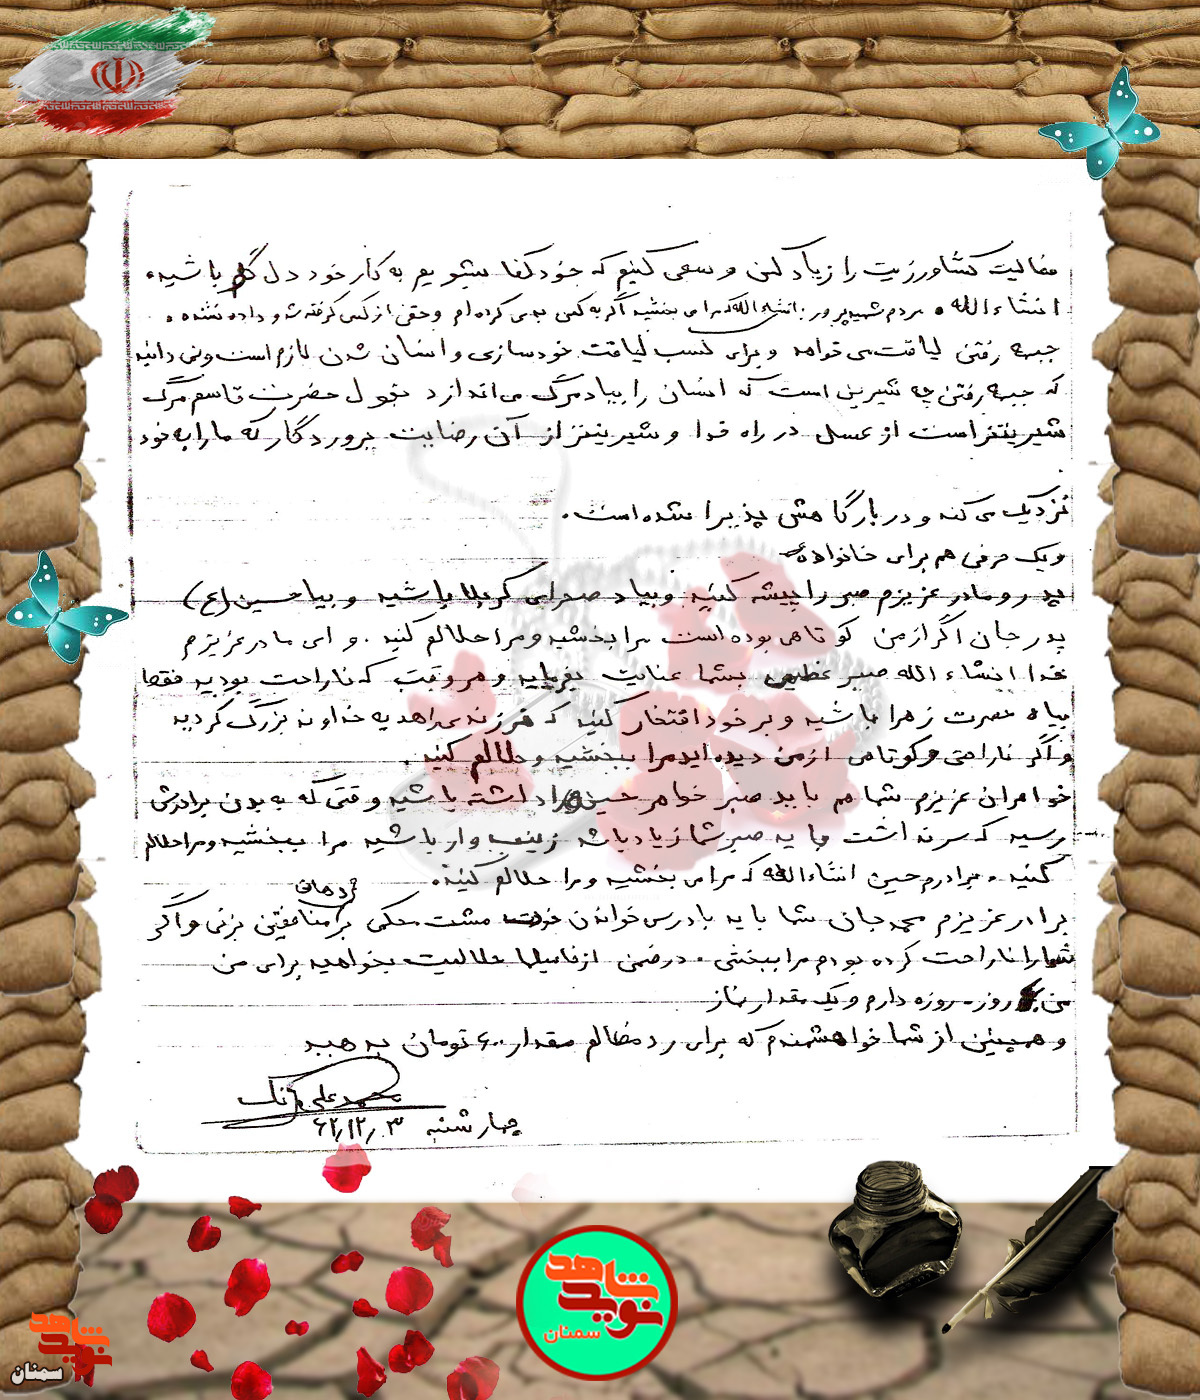 فعالیت کشاورزیت را زیاد کن و سعی کنیم که خودکفا بشویم به کار خود دل گرم باشید،
انشاءالله. مردم شهیدپرور: انشاءالله که مرا می بخشید اگر به کسی بدی کرده ام و حقی از کسی گرفته شد و داده نشده.
جبهه رفتن لیاقت می خواهد و برای کسب لیاقت خودسازی و انسان شدن لازم است و نمی دانید
که جبهه رفتن چه شیرین است که انسان را بیاد مرگ می اندازد بقول حضرت قاسم مرگ
شیرینتر است از عسل در راه خدا و شیرینتر از آن رضایت پروردگار که ما را به خود
نزدیک می کند و در بارگاهش پذیرا شده است.
و یک حرفی هم برای خانواده
پدر و مادر عزیزم صبر را پیشه کنید و بیاد صحرای کربلا باشید و بیا حسین (ع)
پدر جان اگر از من کوتاهی بوده است مرا بخشید و مرا حلالم کنید. و ای مادر عزیزم
خدا انشاءالله صبر عظیمی بشما عنایت بفرماید و هر وقت که ناراحت بودید فقط
بیاد حضرت زهرا باشید و بر خود افتخار کنید که فرزند به خداوند بزرگ کردید
و اگر ناراحتی و کوتاهی از من دیده اید مرا ببخشید و حلالم کنید.
خواهران عزیزم شما هم باید صبر خواهر حسین را داشته باشید وقتی که به بدن برادرش
رسید که سر نداشت باید صبر شما زیاد باشد زینب وار باشید مرا ببخشید و مرا حلالم
کنید. برادرم حسین انشاءالله که مرا می بخشید و مرا حلالم کنید.
برادر عزیزم محمد جان شما باید با درس خواندن خوب مشت محکی بر دهان منافقین بزنی و اگر
شما را ناراحت کرده بودم مرا ببخشی. در ضمن از فامیلها حلالیت بخواهید برای من
من روز روزه دارم و یک مقدار نماز
و همچنین از شما خواهشمندم که برای رد مظالم مقدار ۶۰۰ تومان بدهید
محمد علی
چهارشنبه ۶۲/۱۲/۳
شاهد
نوید
سمنان
شاهد
نوید
سمنان